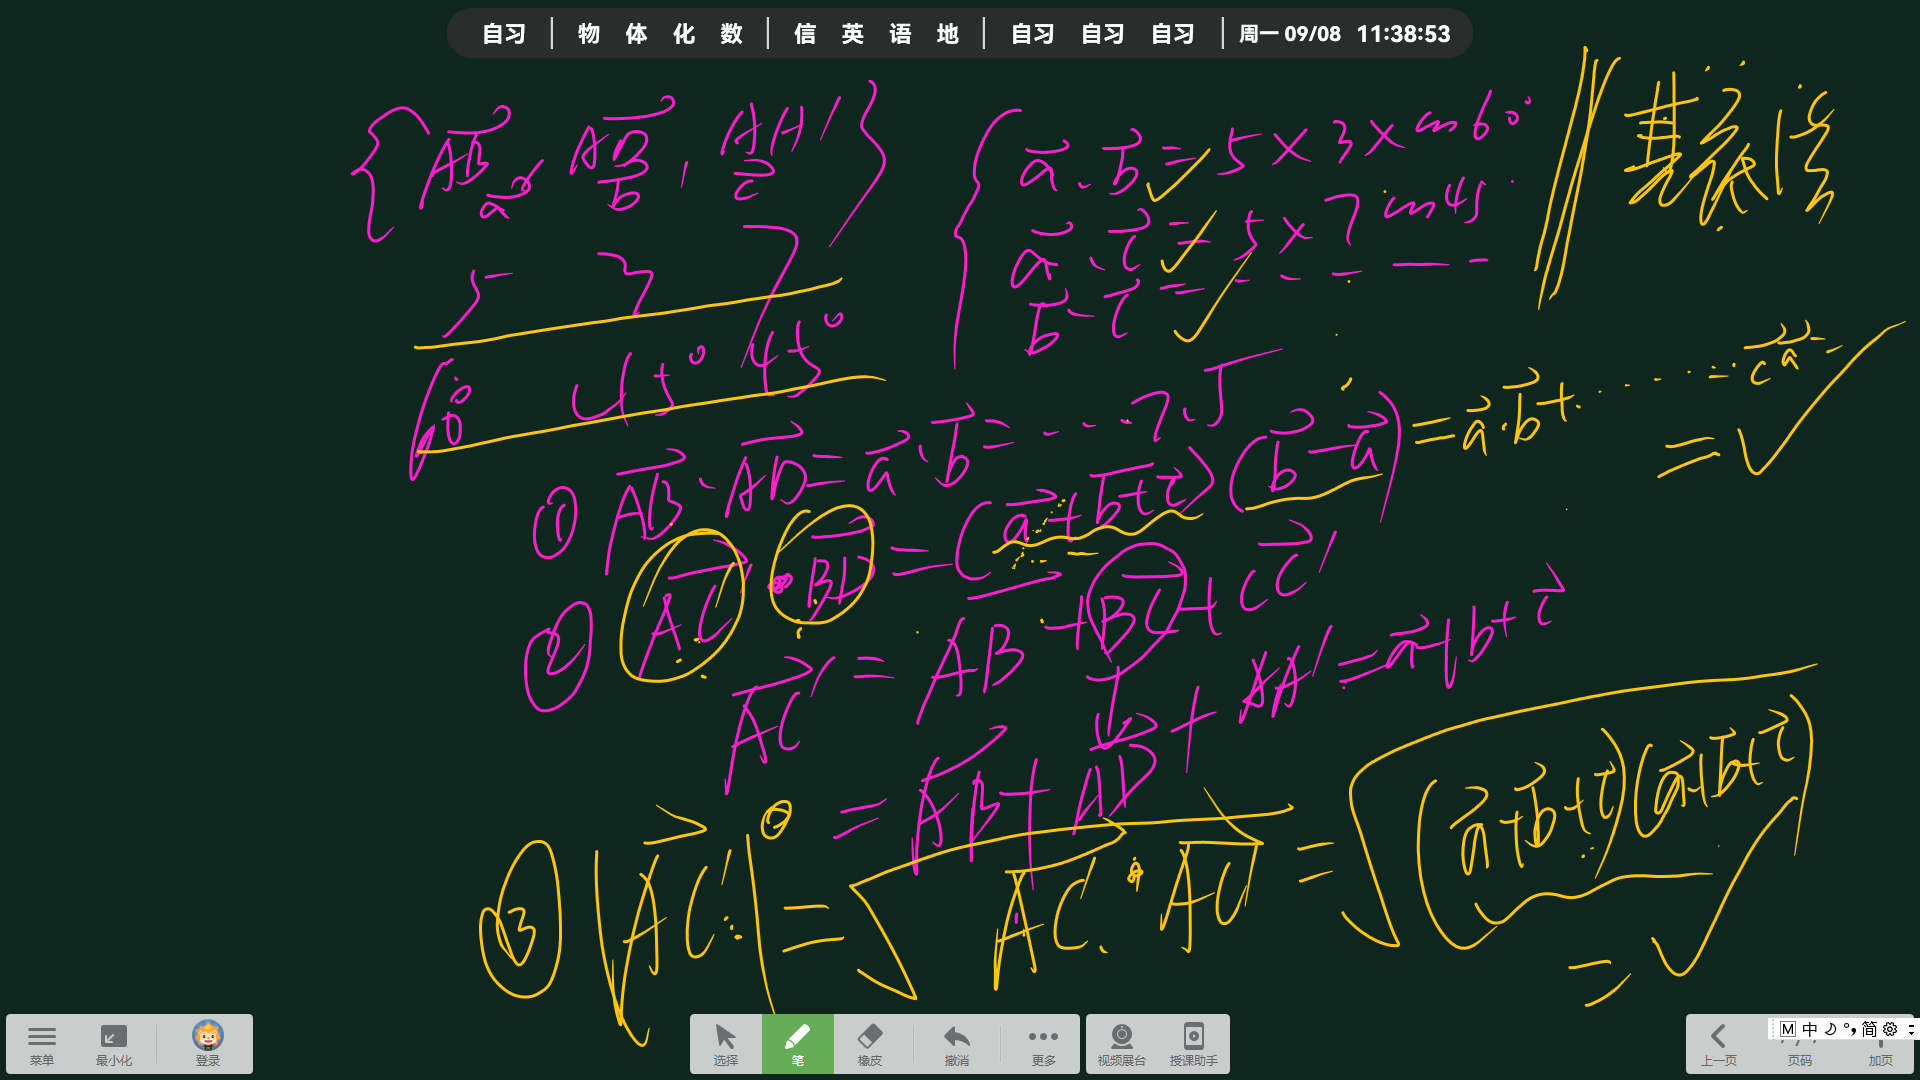 自习 | 物 体 化 数 | 信 英 语 地 | 自习 自习 自习 | 周一 09/08 11:38:53
{AB a, AD b, AA' c}
5 3 7
60° 45° 45°
a·b = 5×3×cos60°
a·c = 5×7cos45
b·c = - - - -
基底法
① AB·AD = a·b = ...
② AC'·BD = (a+b+c)(b-a) = a·b+......-c a =
AC' = AB+BC+CC'
= AB+AD+AA' = a+b+c
③ |AC'| = √AC'·AC' = √(a+b+c)(a+b+c)
=
菜单 最小化 登录 选择 笔 橡皮 撤消 更多 视频展台 授课助手 上一页 页码 加页
M 中 简